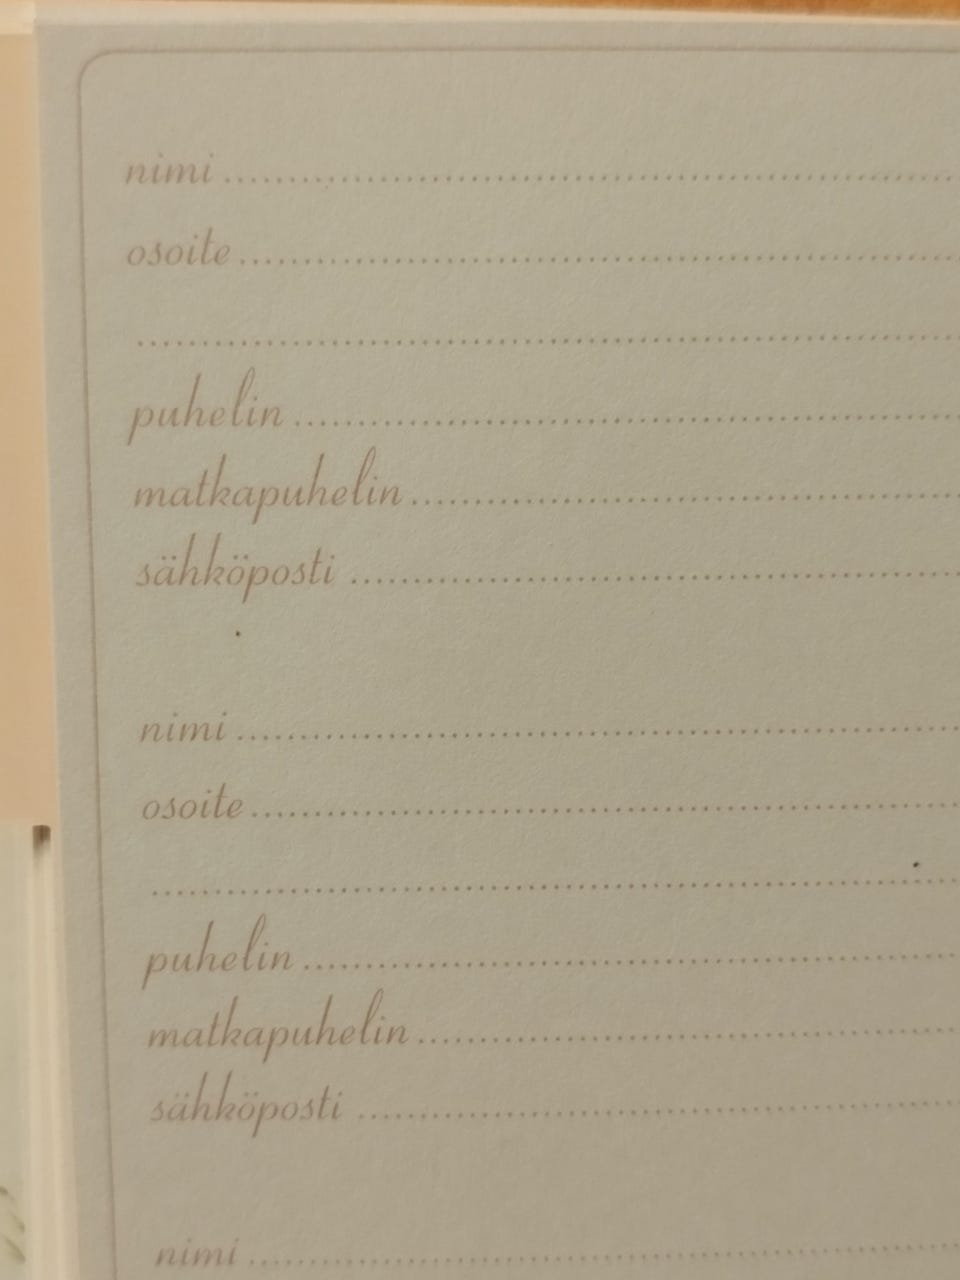 nimi
osoite
puhelin
matkapuhelin
sähköposti
nimi
osoite
puhelin
matkapuhelin
sähköposti
nimi